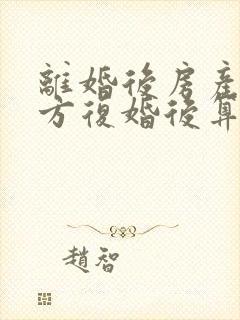 離婚後房產
方復婚後算
趙智